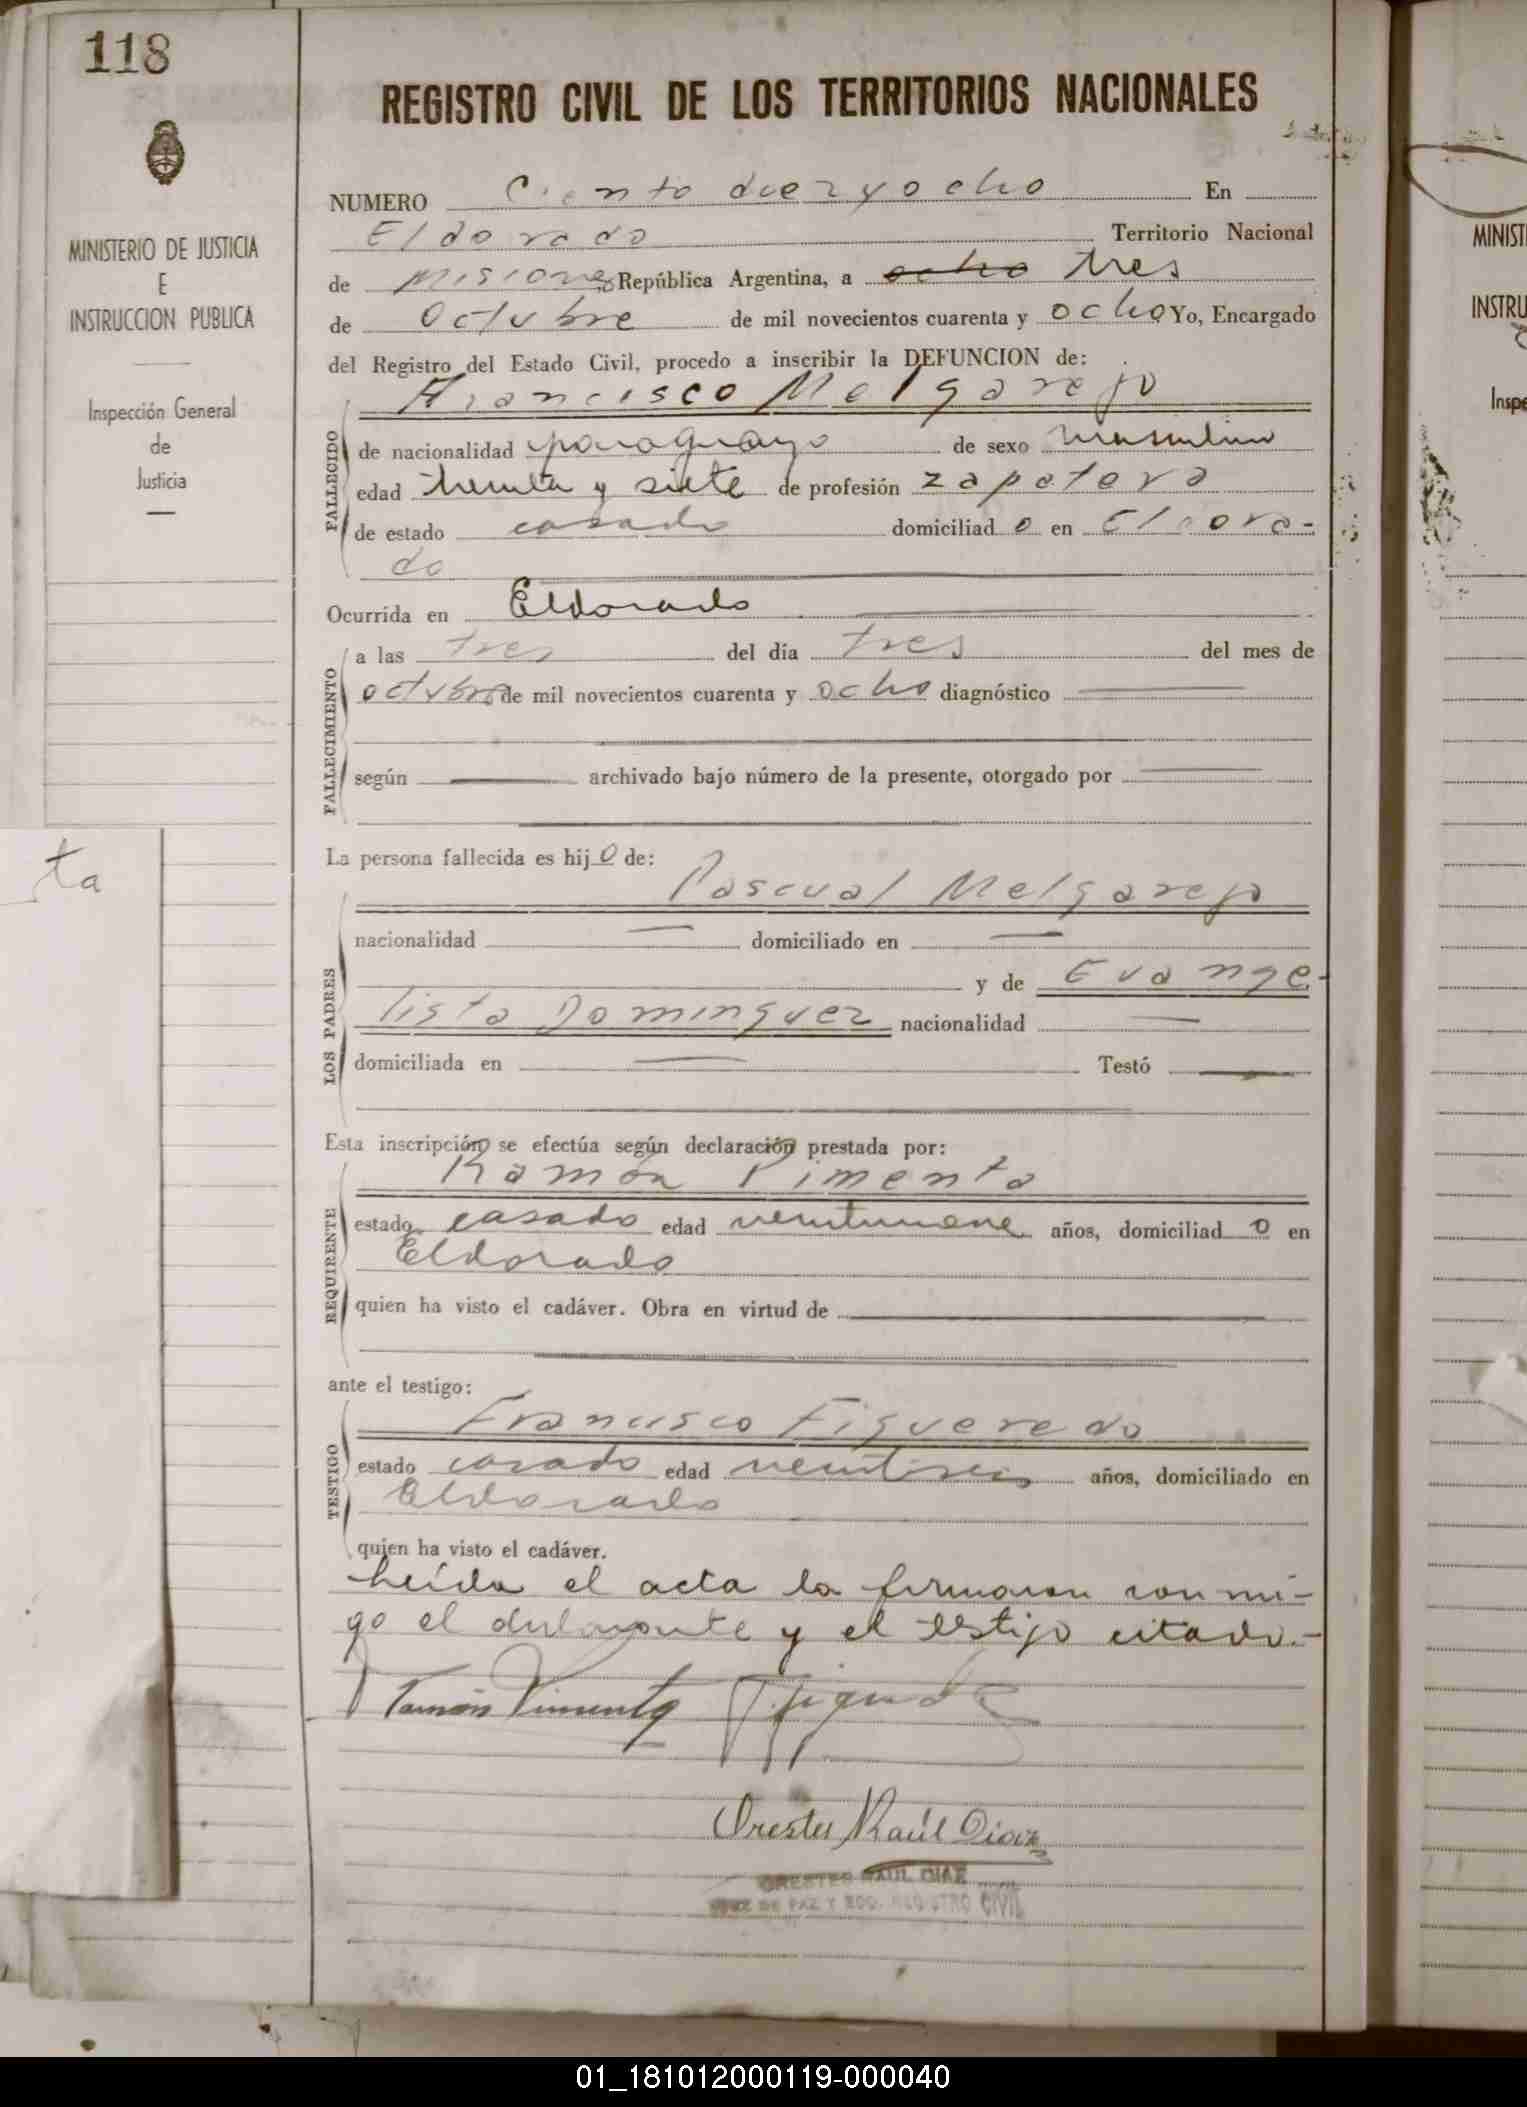 118
REGISTRO CIVIL DE LOS TERRITORIOS NACIONALES
MINISTERIO DE JUSTICIA
E
INSTRUCCION PUBLICA
Inspección General
de
Justicia
NUMERO Ciento diez y ocho En
Eldorado Territorio Nacional
de Misiones República Argentina, a ocho tres
de Octubre de mil novecientos cuarenta y ocho Yo, Encargado
del Registro del Estado Civil, procedo a inscribir la DEFUNCION de:
Francisco Melgarejo
FALLECIDO
de nacionalidad paraguayo de sexo masculino
edad treinta y siete de profesión zapatero
de estado casado domiciliado en Eldora-
do
Ocurrida en Eldorado
FALLECIMIENTO
a las tres del día tres del mes de
octubre de mil novecientos cuarenta y ocho diagnóstico
según archivado bajo número de la presente, otorgado por
La persona fallecida es hijo de:
Pascual Melgarejo
LOS PADRES
nacionalidad domiciliado en
y de Evange-
lista Dominguez nacionalidad
domiciliada en Testó
Esta inscripción se efectúa según declaración prestada por:
Ramón Pimenta
REQUIRENTE
estado casado edad veintinueve años, domiciliado en
Eldorado
quien ha visto el cadáver. Obra en virtud de
ante el testigo:
Francisco Figueredo
TESTIGO
estado casado edad veintiseis años, domiciliado en
Eldorado
quien ha visto el cadáver.
Leída el acta la firmaron conmi-
go el declarante y el testigo citado.-
Ramón Pimenta
Orestes Raúl Diaz
ORESTES RAUL DIAZ
JUEZ DE PAZ Y ECG. REGISTRO CIVIL
ta
MINIST
INSTRU
Inspe
01_181012000119-000040